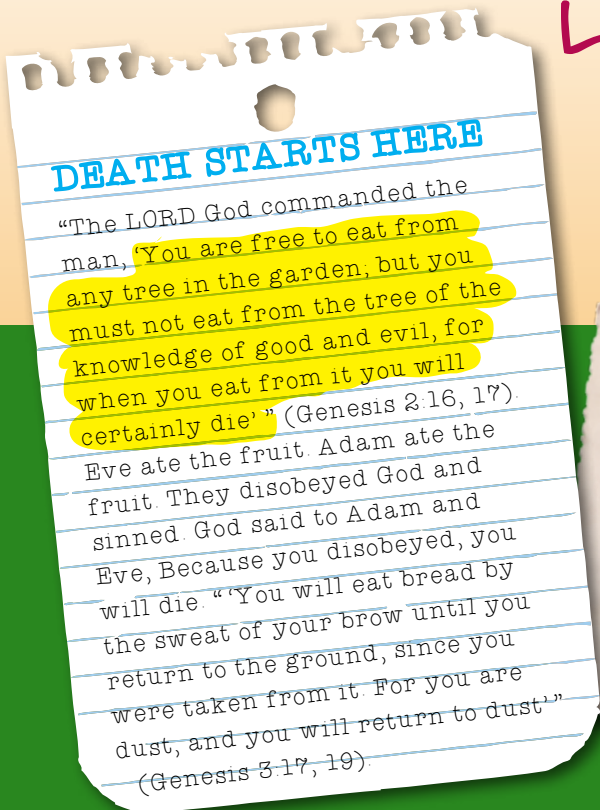 DEATH STARTS HERE
“The LORD God commanded the
man, ‘You are free to eat from
any tree in the garden; but you
must not eat from the tree of the
knowledge of good and evil, for
when you eat from it you will
certainly die’ ” (Genesis 2:16, 17).
Eve ate the fruit. Adam ate the
fruit. They disobeyed God and
sinned. God said to Adam and
Eve, Because you disobeyed, you
will die. “ ‘You will eat bread by
the sweat of your brow until you
return to the ground, since you
were taken from it. For you are
dust, and you will return to dust’ ”
(Genesis 3:17, 19).